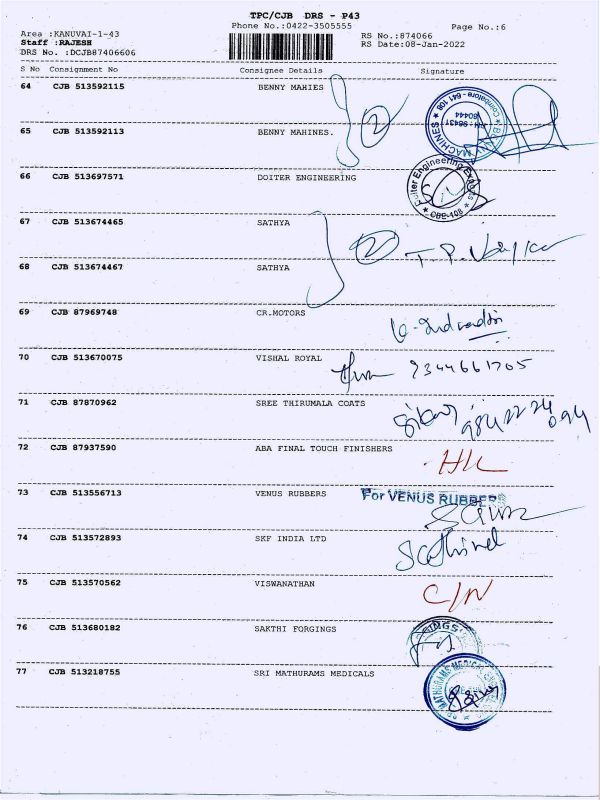 TPC/CJB DRS - P43
Phone No.:0422-3505555
Page No.:6
Area :KANUVAI-1-43
RS No.:874066
Staff :RAJESH
RS Date:08-Jan-2022
DRS No. :DCJB87406606
S No Consignment No Consignee Details Signature
64 CJB 513592115 BENNY MAHIES
2
65 CJB 513592113 BENNY MAHINES.
MACHINES
Coimbatore - 641 108
66 CJB 513697571 DOITER ENGINEERING
Doiter Engineering
CBE-108
67 CJB 513674465 SATHYA
2
68 CJB 513674467 SATHYA
69 CJB 87969748 CR.MOTORS
70 CJB 513670075 VISHAL ROYAL
9344661705
71 CJB 87870962 SREE THIRUMALA COATS
72 CJB 87937590 ABA FINAL TOUCH FINISHERS
73 CJB 513556713 VENUS RUBBERS For VENUS RUBBERS
74 CJB 513572893 SKF INDIA LTD
75 CJB 513570562 VISWANATHAN C/N
76 CJB 513680182 SAKTHI FORGINGS
77 CJB 513218755 SRI MATHURAMS MEDICALS
MATHURAMS MEDICAL